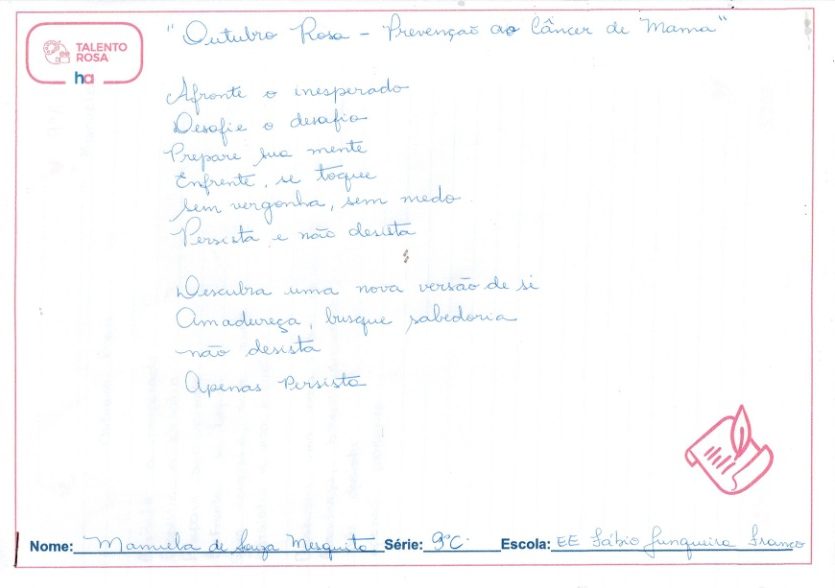 TALENTO
ROSA
ha
"Outubro Rosa - Prevenção ao Câncer de Mama"
Afronte o inesperado
Desafie o desafio
Prepare sua mente
Enfrente, se toque
sem vergonha, sem medo
Persista e não desista
Descubra uma nova versão de si
Amadureça, busque sabedoria
não desista
Apenas Persista
Nome: Manuela de Souza Mesquita Série: 9ºC Escola: EE Fábio Junqueira Franco